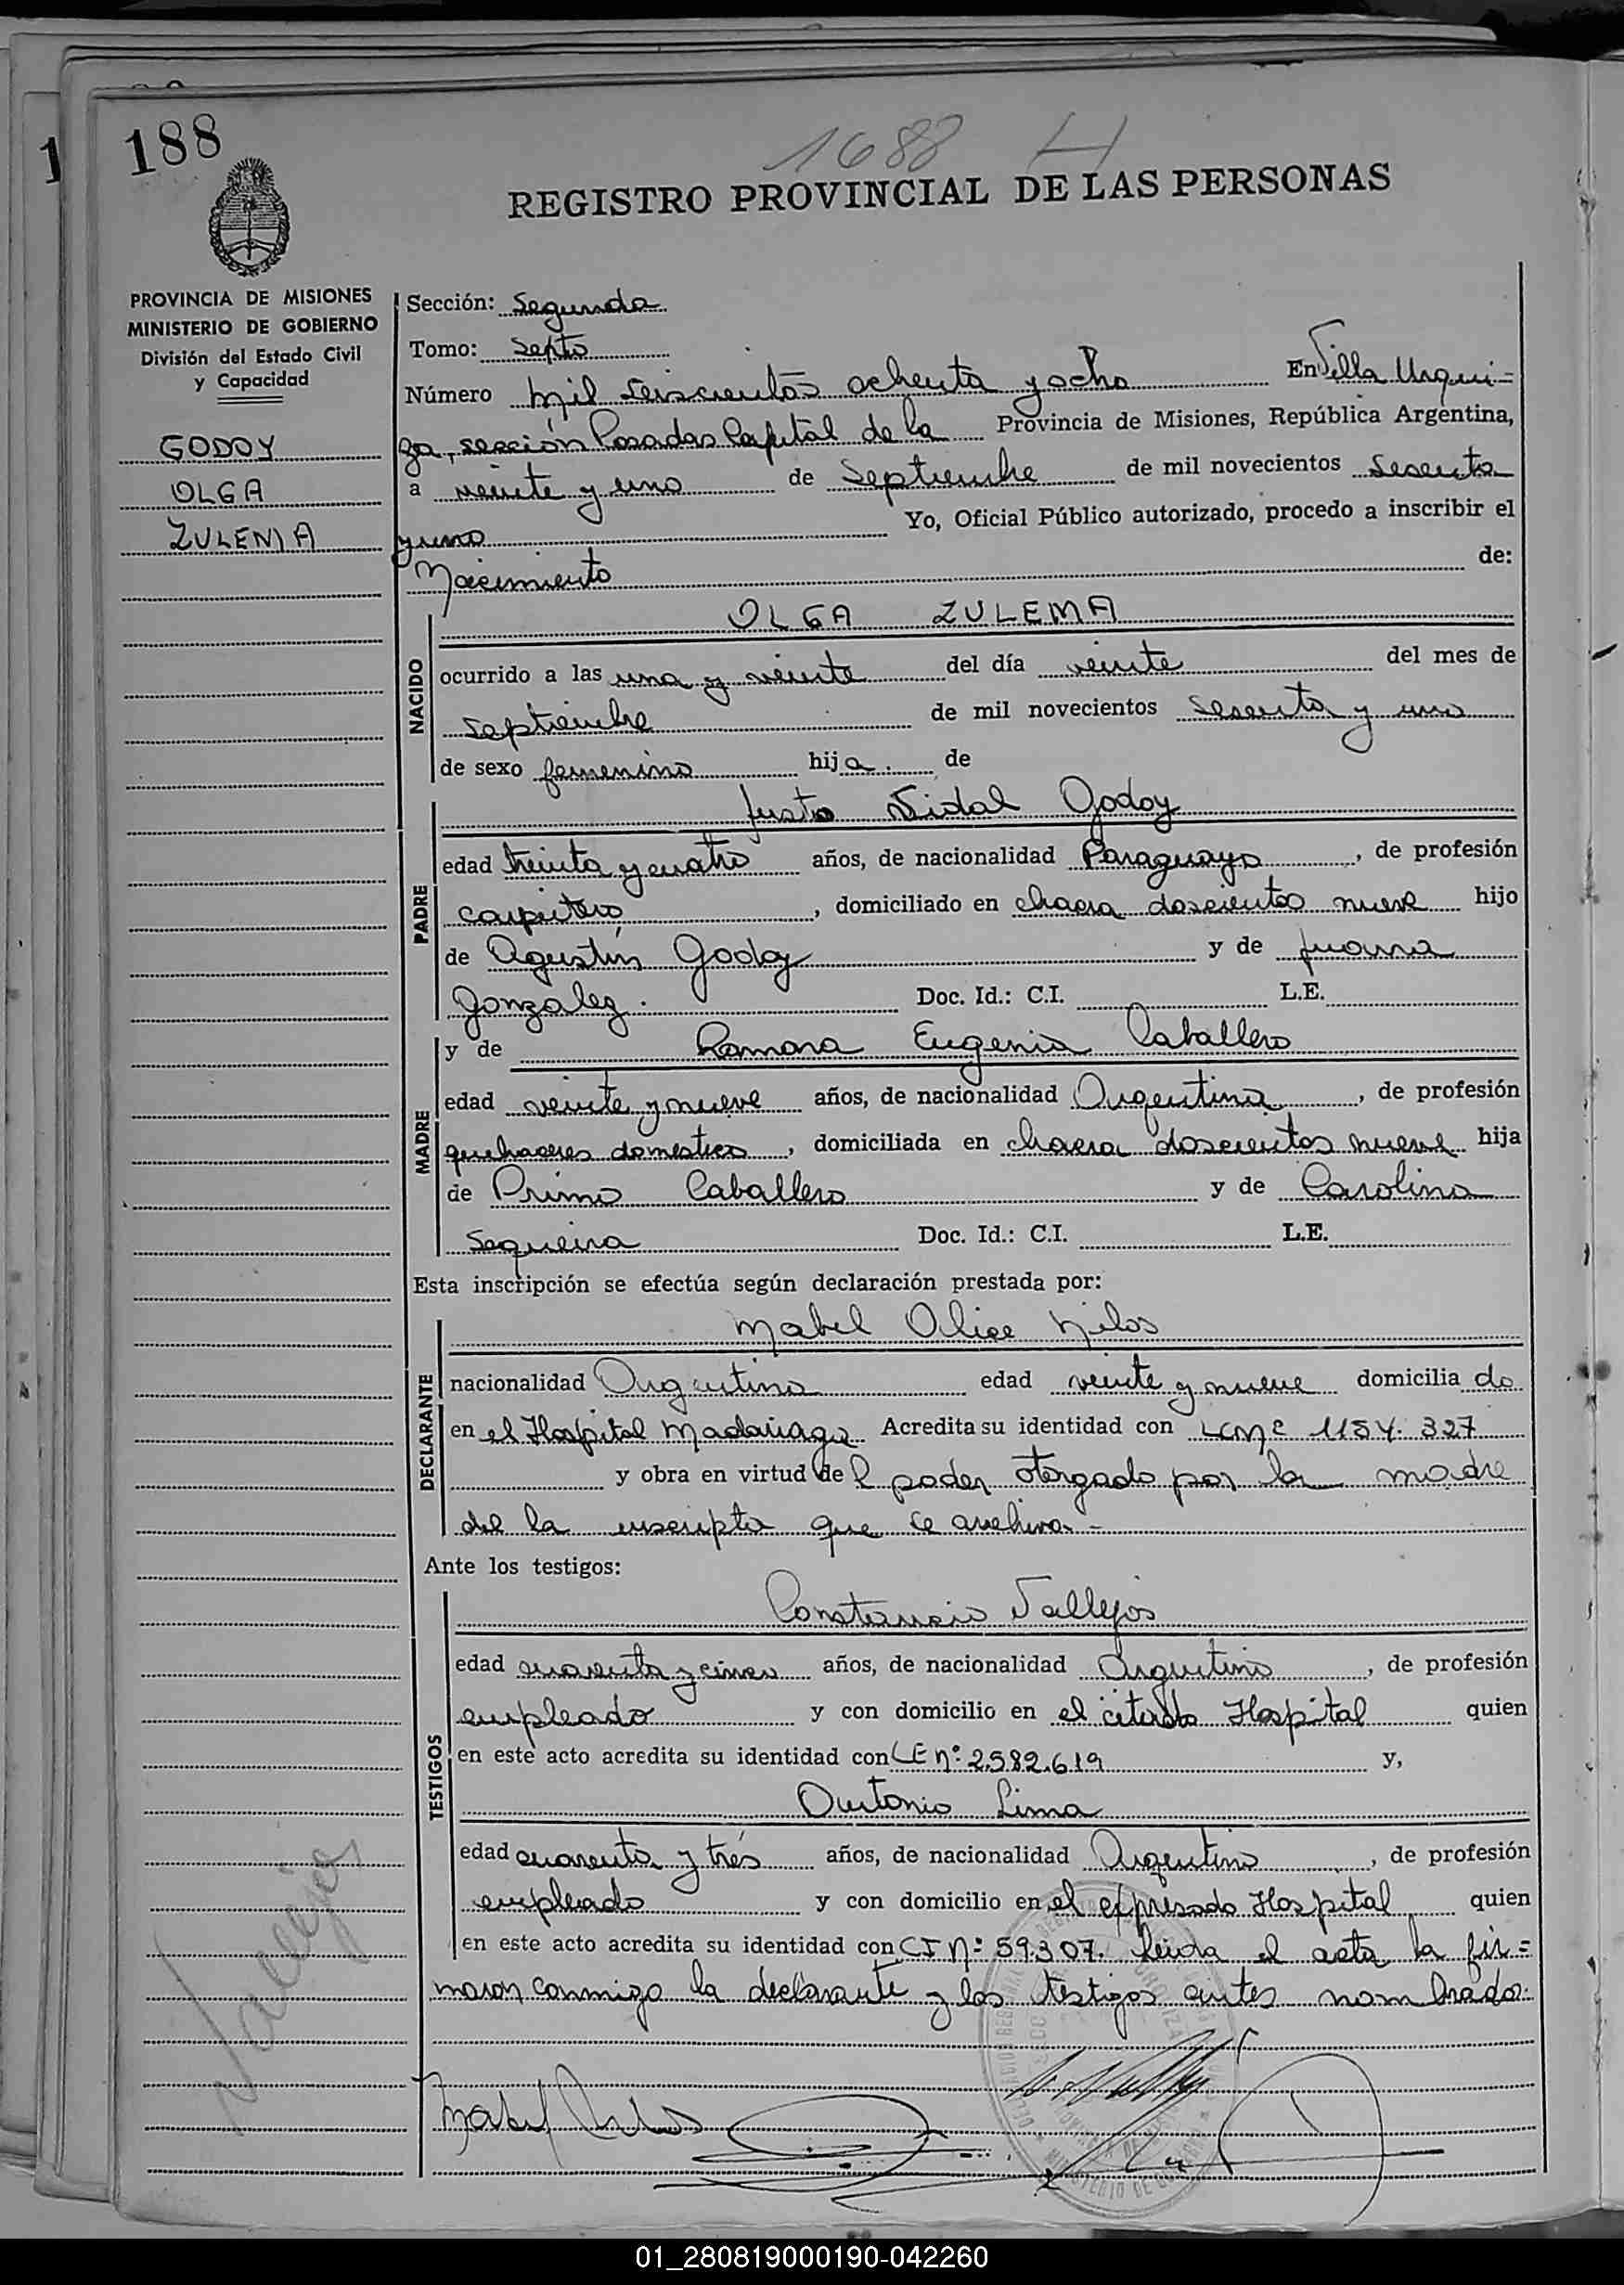 188
1688 H
REGISTRO PROVINCIAL DE LAS PERSONAS
PROVINCIA DE MISIONES
MINISTERIO DE GOBIERNO
División del Estado Civil
y Capacidad
GODOY
OLGA
ZULEMA
Sección: Segunda
Tomo: Septo
Número mil seiscientos ochenta y ocho En Villa Urqui=
za, sección Posadas Capital de la Provincia de Misiones, República Argentina,
a veinte y uno de Septiembre de mil novecientos Sesenta
y uno Yo, Oficial Público autorizado, procedo a inscribir el
Nacimiento de:
NACIDO
OLGA ZULEMA
ocurrido a las una y veinte del día veinte del mes de
septiembre de mil novecientos sesenta y uno
de sexo femenino hija. de
PADRE
Justo Vidal Godoy
edad treinta y cuatro años, de nacionalidad Paraguayo, de profesión
carpintero, domiciliado en chacra doscientos nueve hijo
de Agustín Godoy y de Juana
Gonzalez. Doc. Id.: C.I. L.E.
MADRE
y de Ramona Eugenia Caballero
edad veinte y nueve años, de nacionalidad Argentina, de profesión
quehaceres domesticos, domiciliada en chacra doscientos nueve hija
de Primo Caballero y de Carolina
Sequeira Doc. Id.: C.I. L.E.
Esta inscripción se efectúa según declaración prestada por:
DECLARANTE
Mabel Alice
nacionalidad Argentina edad veinte y nueve domiciliado
en el Hospital Madariaga Acredita su identidad con 1154.327
y obra en virtud del poder otorgado por la madre
de la inscripta que se archiva.-
Ante los testigos:
TESTIGOS
Constancio Vallejos
edad cuarenta y cinco años, de nacionalidad Argentino, de profesión
empleado y con domicilio en el citado Hospital quien
en este acto acredita su identidad con LE nº 2.582.619 y,
Antonio Lima
edad cuarenta y trés años, de nacionalidad Argentino, de profesión
empleado y con domicilio en el expresado Hospital quien
en este acto acredita su identidad con CI Nº 59.307. Leída el acta la fir=
maron conmigo la declarante y los testigos antes nombrados.
Vallejos
01_280819000190-042260